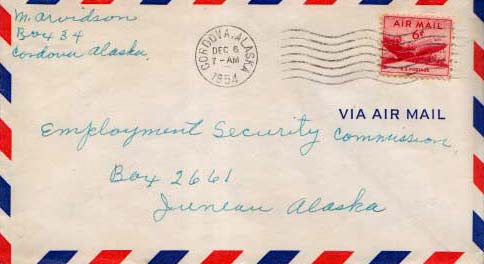 M. Arvidson
Box 34
Cordova Alaska.
CORDOVA, ALASKA
DEC 6
7-AM
1954
AIR MAIL
6¢
U.S. POSTAGE
VIA AIR MAIL
Employment Security Commission
Box 2661
Juneau Alaska